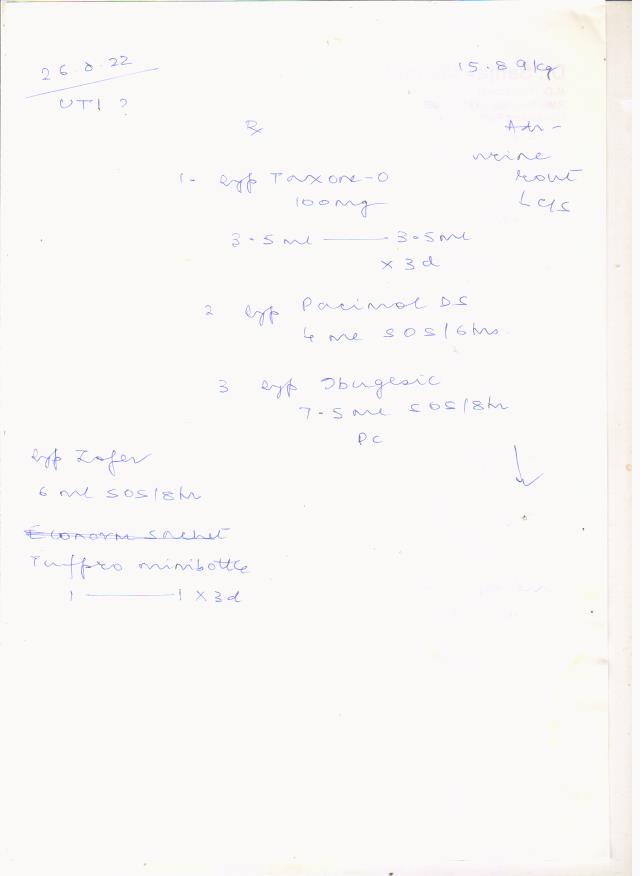 26.8.22
15.89kg
UTI ?
Rx
Adv -
urine
rout
L c/s
1- syp Taxone-O
100mg
3.5ml — 3.5ml
x 3d
2 syp Pacimol DS
4 ml SOS/6hrs
3 syp Ibugesic
7.5ml SOS/8hr
PC
syp Zofer
6 ml SOS/8hr
Econorm sachet
Tuffpro minibottle
1 — 1 x 3d